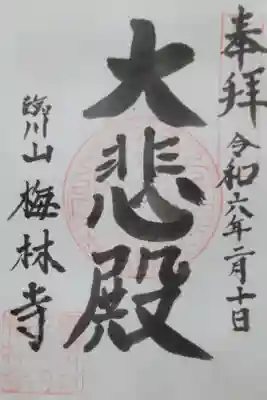 奉拝 令和六年二月十日
大悲殿
臨川山 梅林寺